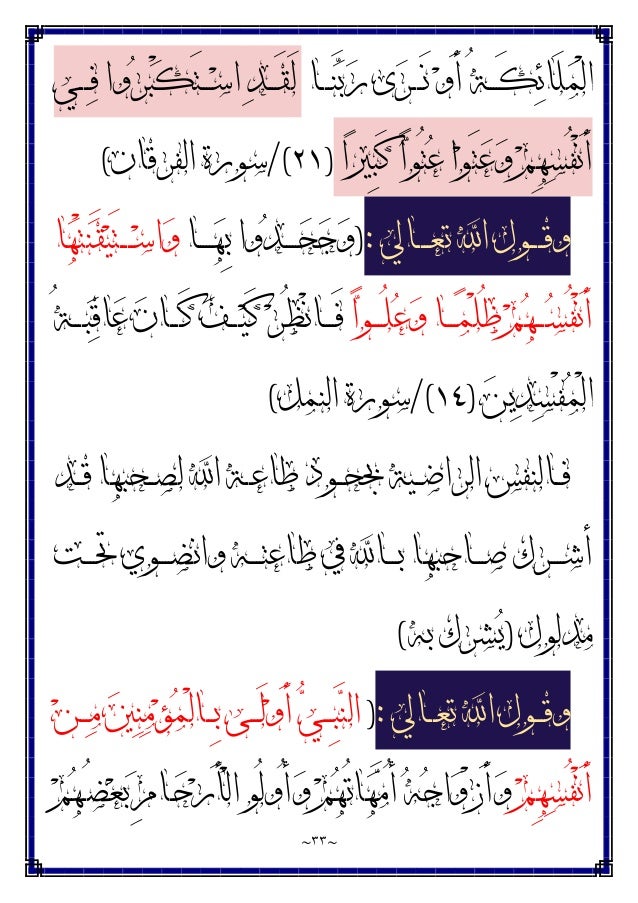 الْمَلَائِكَةُ أَوْ نَرَى رَبَّنَا لَقَدِ اسْتَكْبَرُوا فِي
أَنْفُسِهِمْ وَعَتَوْا عُتُوًّا كَبِيرًا (٢١)/سورة الفرقان)
وقول الله تعالي :(وَجَحَدُوا بِهَا وَاسْتَيْقَنَتْهَا
أَنْفُسُهُمْ ظُلْمًا وَعُلُوًّا فَانْظُرْ كَيْفَ كَانَ عَاقِبَةُ
الْمُفْسِدِينَ (١٤)/سورة النمل)
فالنفس الراضية بجحود طاعة الله لصحبها قد
أشرك صاحبها بالله في طاعته وانضوي تحت
مدلول (يُشرك به)
وقول الله تعالي :( النَّبِيُّ أَوْلَى بِالْمُؤْمِنِينَ مِنْ
أَنْفُسِهِمْ وَأَزْوَاجُهُ أُمَّهَاتُهُمْ وَأُولُو الْأَرْحَامِ بَعْضُهُمْ
~٣٣~